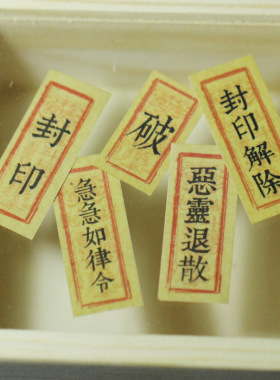 封印
破
封印解除
急急如律令
惡靈退散